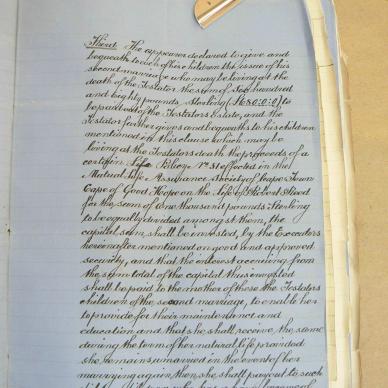 Third The appearer declared to give and
bequeath to each of his children the issue of his
second marriage who may be living at the
death of the Testator the sum of hundred
and eighty pounds, Sterling to
be paid out of the Testator's Estate, and the
Testator further gives and bequeaths to his children
mentioned in this clause which may be
living at the Testators death the proceeds of a
certain Life Policy No 31 effected in the
Mutual Life Assurance Society of Cape Town
Cape of Good Hope on the Life of Robert
for the sum of One thousand pounds Sterling
to be equally divided amongst them, the
capital sum, shall be invested, by the Executors
hereinafter mentioned on good and approved
security, and that the interest accruing from
the sum total of the capital thus invested
shall be paid to the mother of these the Testators
children of the second marriage, to enable her
to provide for their maintenance and
education and that she shall receive the same
during the term of her natural life provided
she remains unmarried in the event of her
marrying again then she shall pay out to such